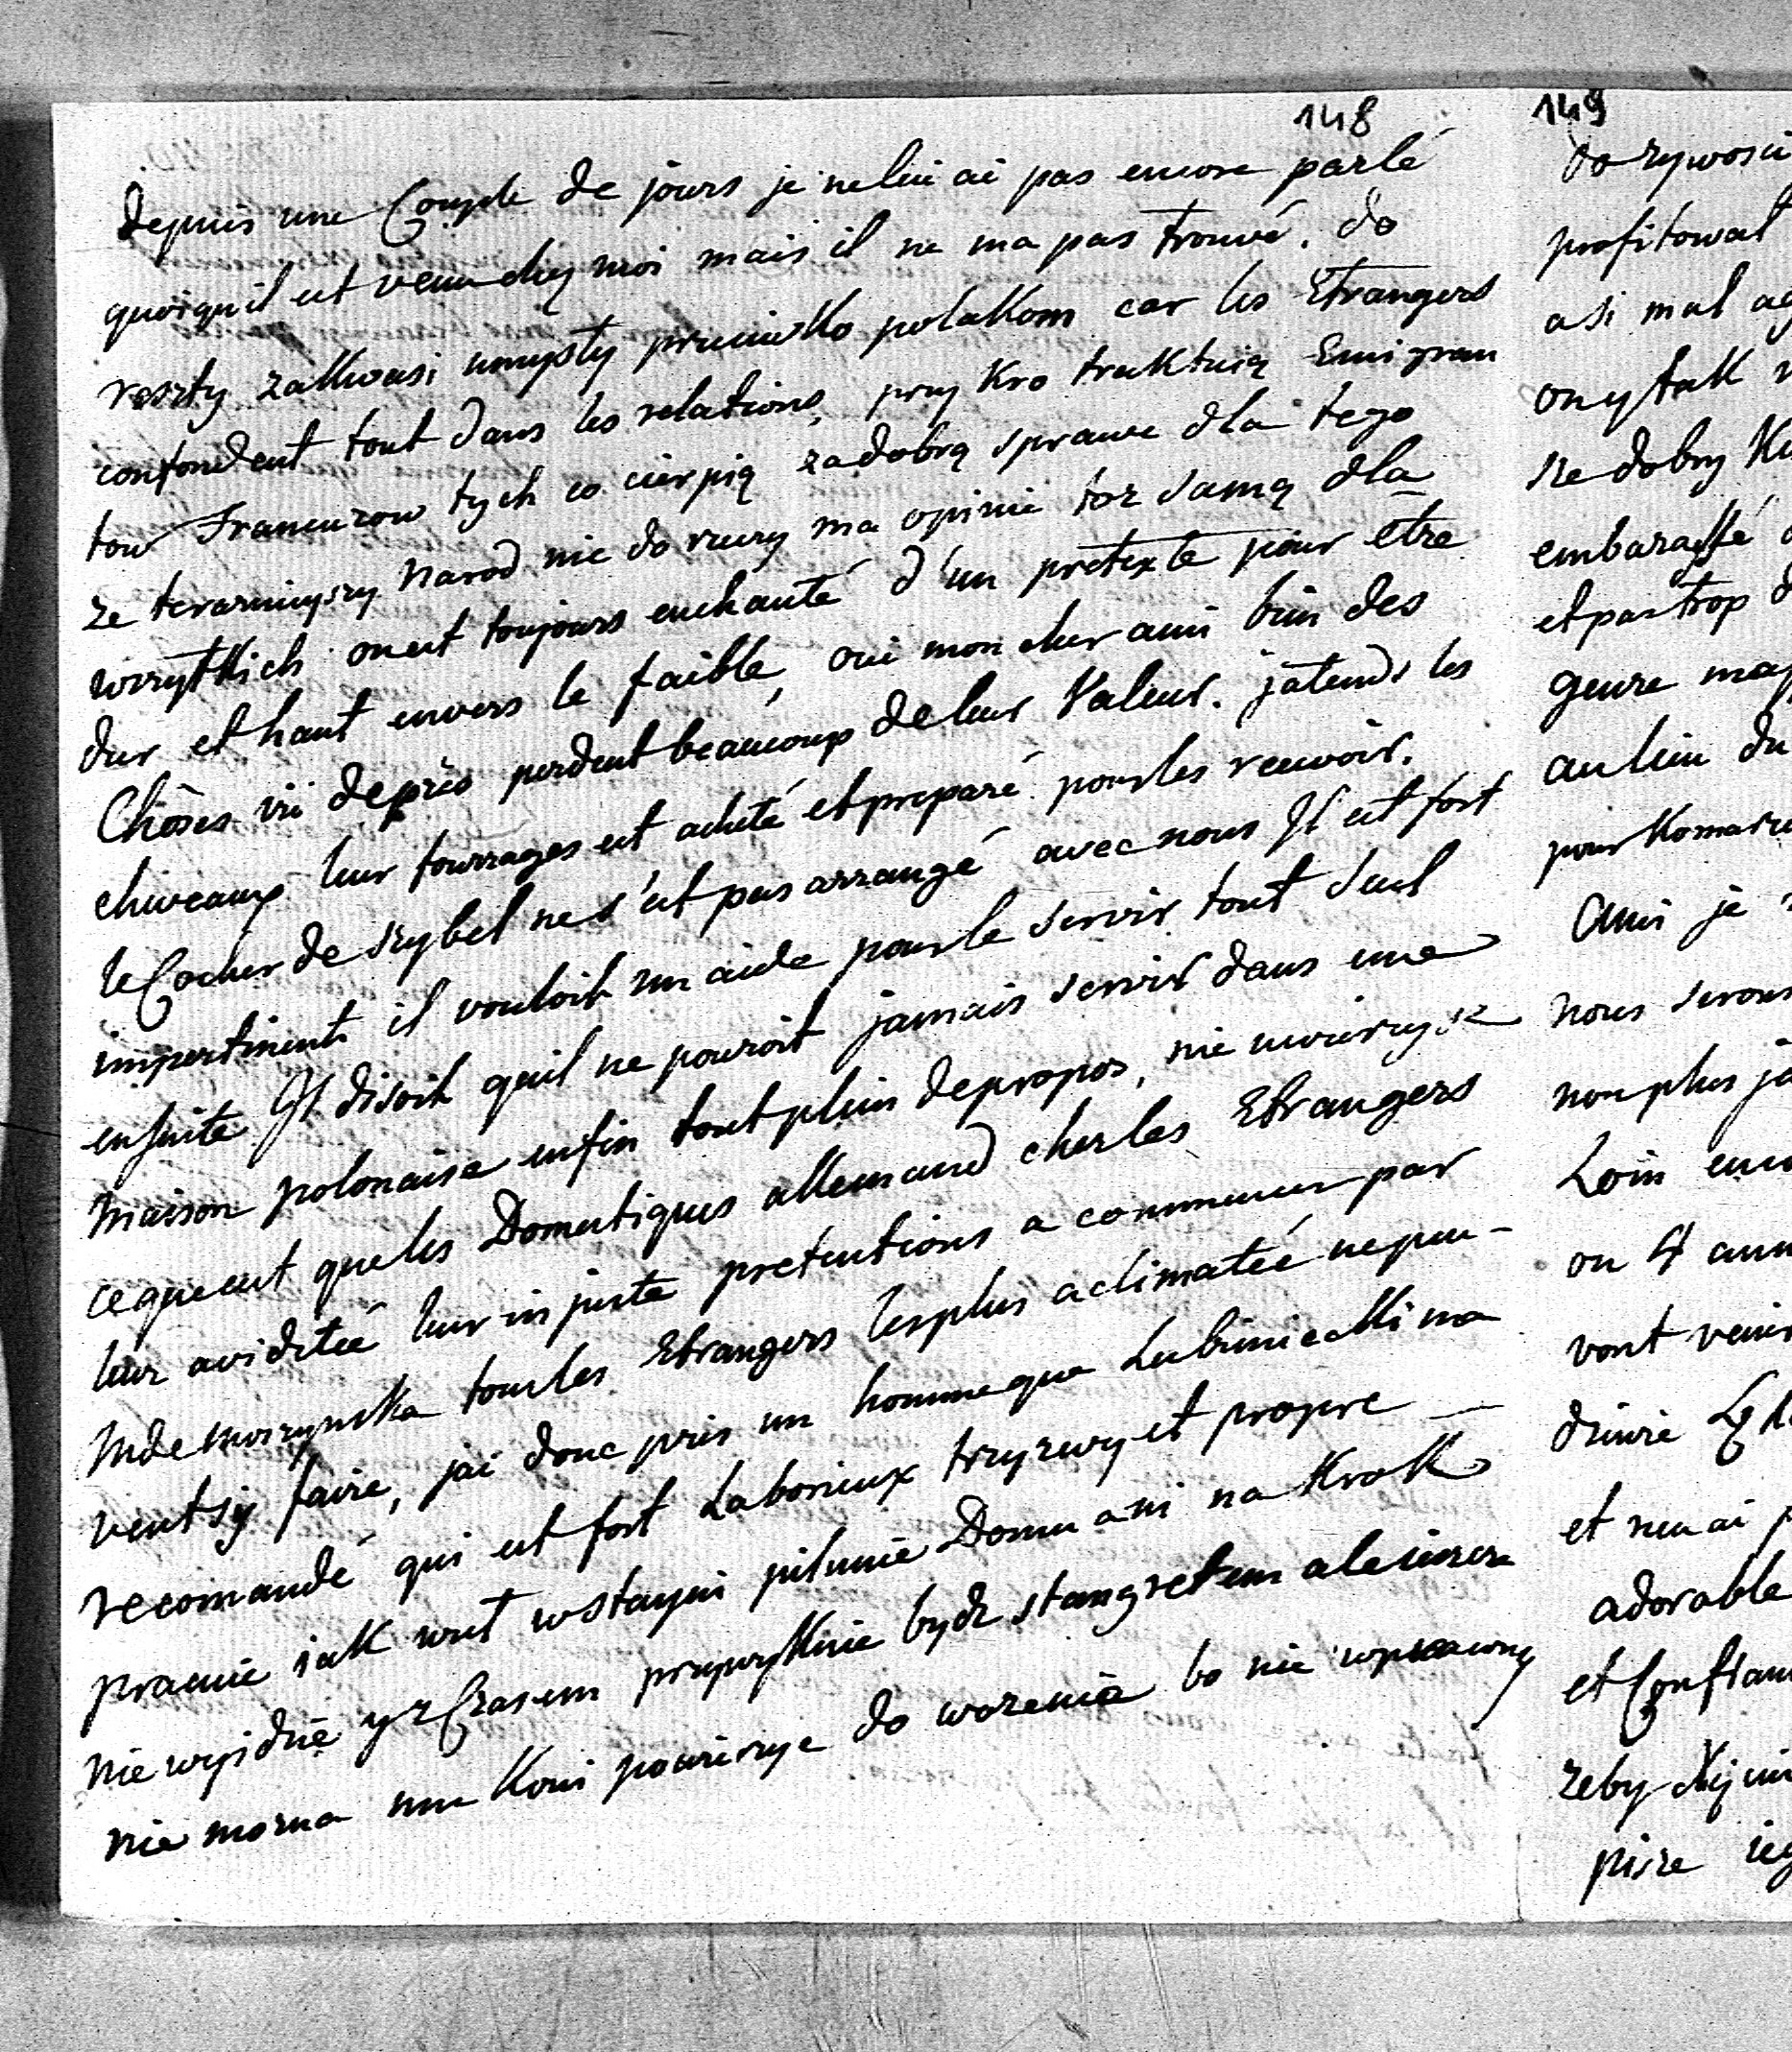 148
depuis une Couple de jours je ne lui ai pas encore parlé
quoiqu'il est venu chez moi mais il ne ma pas trouvé. do
reszty zakwasi umysły przeciwko polakom car les Etrangers
confondent tout dans les relations, przykro traktuią Emigran
tow Francuzow tych co cierpią za dobrą sprawe dla tego
ze teraznieyszy Narod nic do rzeczy ma opinie toz samą dla
wszytkich on est toujours enchanté d'un pretexte pour etre
dur et haut envers le faible, oui mon cher ami bien des
Choses vu de près perdent beaucoup de leur Valeur. jatends les
cheveaux leur fourrages est acheté et preparé pour les recevoir.
le Cocher de szybel ne s'est pas arrangé avec nous Il est fort
impertinent il vouloit un aide pour le servir tout seul
ensuite Il disoit quil ne pouroit jamais servir dans une
maison polonaise enfin tout plein de propos, nie uwierzysz
ce que cest que les Domestiques allemand chez les Etrangers
leur aviditeé leur injuste pretentions a commencer par
Mde Moszynska tous les Etrangers les plus aclimateé ne peu-
vent sy faire, jai donc pris un homme que Lubinieckina
recomandé qui est fort Laborieux trzezwy et propre
pracuie iak wuł w stayni pilnuie Domu ani na krok
nie wyidzie y z Czasem przywyknie bydz stangretem ale ieszcze
nie mozna mu koni powierzyc do wozenia bo nie wprawny
149
do zywosci
profitował
asi mal
ony tak
ze dobry
embarassé
et pas trop
genre
au lieu du
pour
Ami je
nous serons
non plus
Loin
ou 4
vont venir
et
adorable
et
zeby
pisze